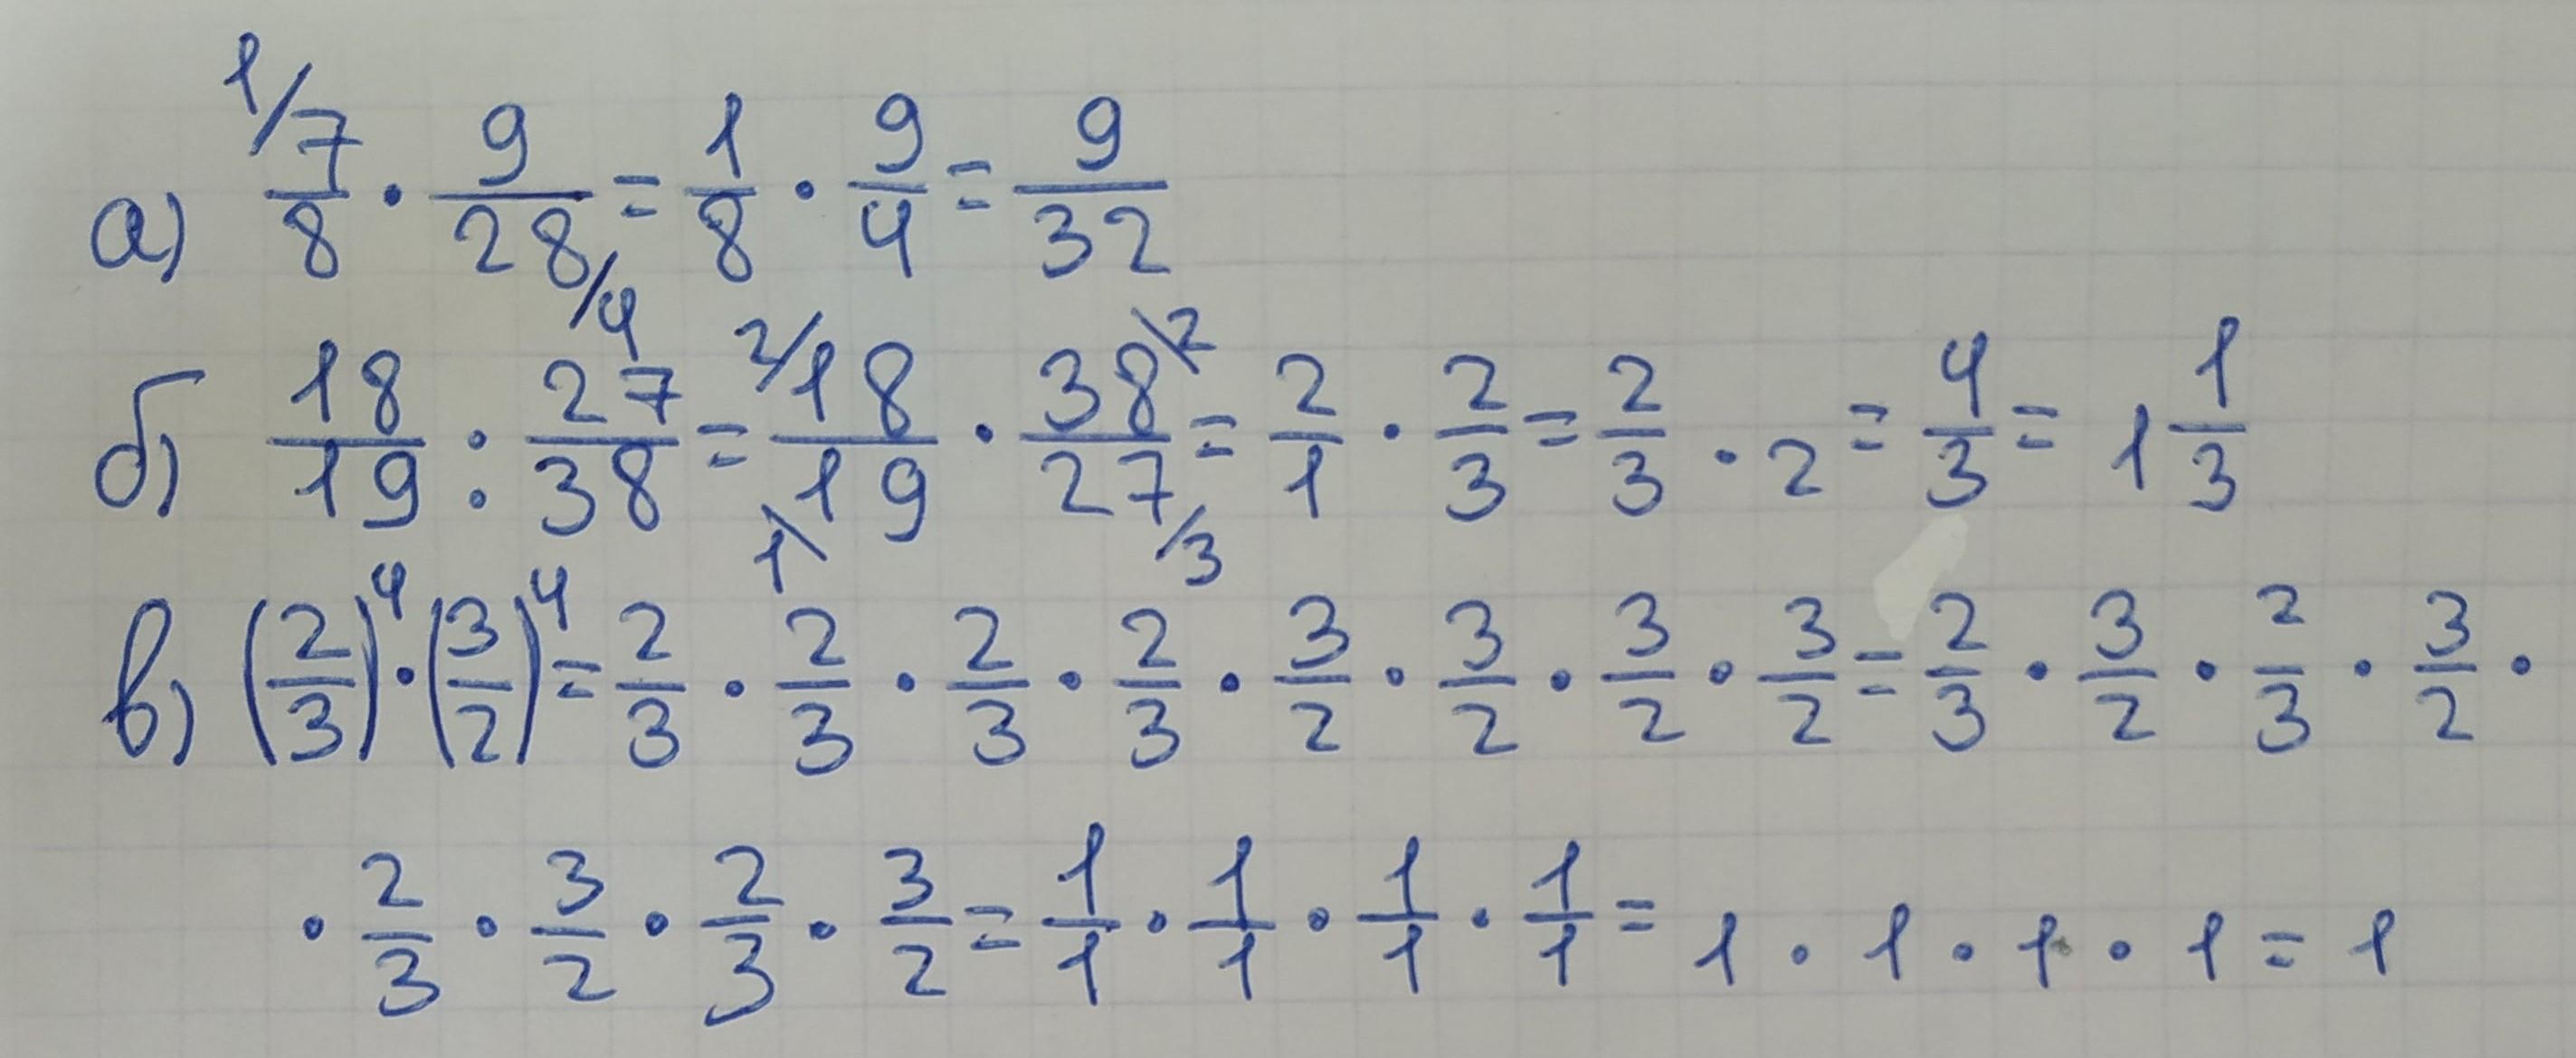 а) ¹/7/8 · 9/28/₄ = 1/8 · 9/4 = 9/32
б) 18/19 : 27/38 = ²/18/19\₁ · 38\²/27/₃ = 2/1 · 2/3 = 2/3 · 2 = 4/3 = 1 1/3
в) (2/3)⁴ · (3/2)⁴ = 2/3 · 2/3 · 2/3 · 2/3 · 3/2 · 3/2 · 3/2 · 3/2 = 2/3 · 3/2 · 2/3 · 3/2 ·
· 2/3 · 3/2 · 2/3 · 3/2 = 1/1 · 1/1 · 1/1 · 1/1 = 1 · 1 · 1 · 1 = 1